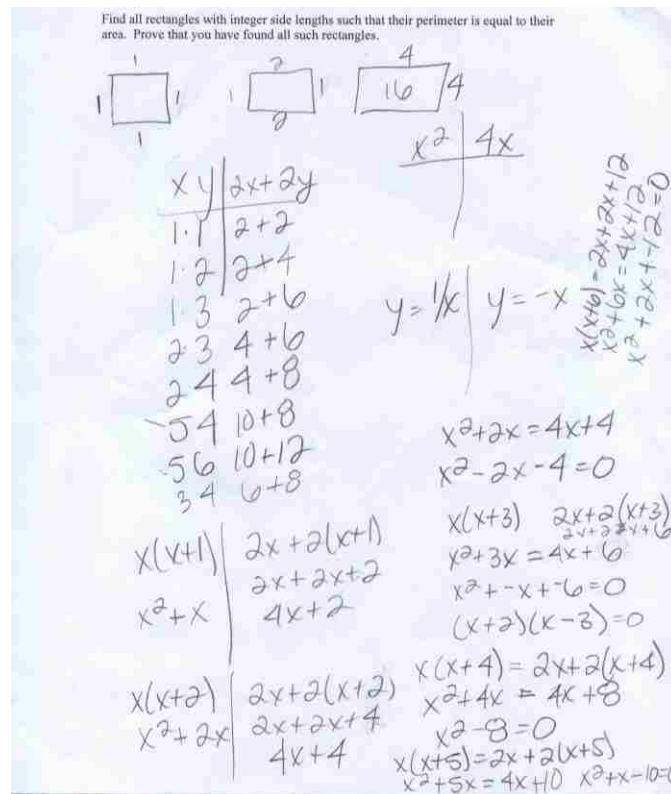 Find all rectangles with integer side lengths such that their perimeter is equal to their
area. Prove that you have found all such rectangles.
1
1
1
1
2
1
1
2
4
16
4
x² | 4x
xy | 2x+2y
1·1 | 2+2
1·2 | 2+4
1 3 2+6
2·3 4+6
2 4 4+8
54 10+8
56 10+12
34 6+8
y=1/x | y=-x
x(x+6)=2x+2x+12
x²+6x=4x+12
x²+2x+-12=0
x²+2x=4x+4
x²-2x-4=0
x(x+1) | 2x+2(x+1)
2x+2x+2
x²+x | 4x+2
x(x+3) 2x+2(x+3)
x²+3x=4x+6
x²+-x+-6=0
(x+2)(x-3)=0
x(x+2) | 2x+2(x+2)
x²+2x | 2x+2x+4
4x+4
x(x+4)=2x+2(x+4)
x²+4x=4x+8
x²-8=0
x(x+5)=2x+2(x+5)
x²+5x=4x+10 x²+x-10=